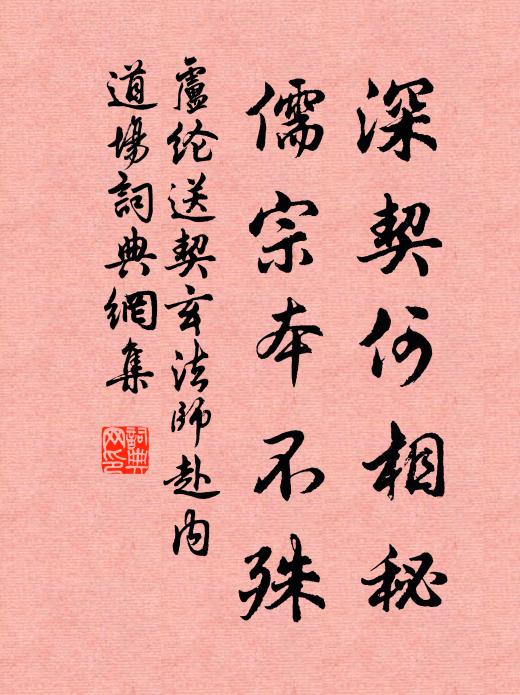 深契何相秘
儒宗本不殊
盧纶送契玄法師赴内
道場詞典網集
詞典网印